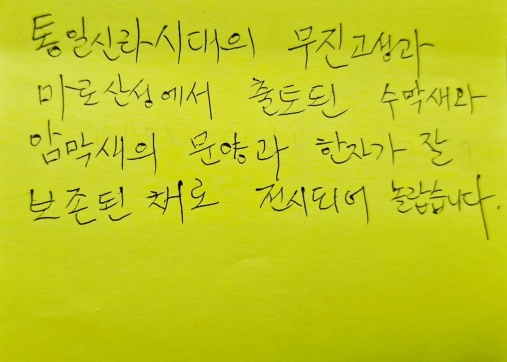 통일신라시대의 무진고성과
마로산성에서 출토된 수막새와
암막새의 문양과 한자가 잘
보존된 채로 전시되어 놀랍습니다.